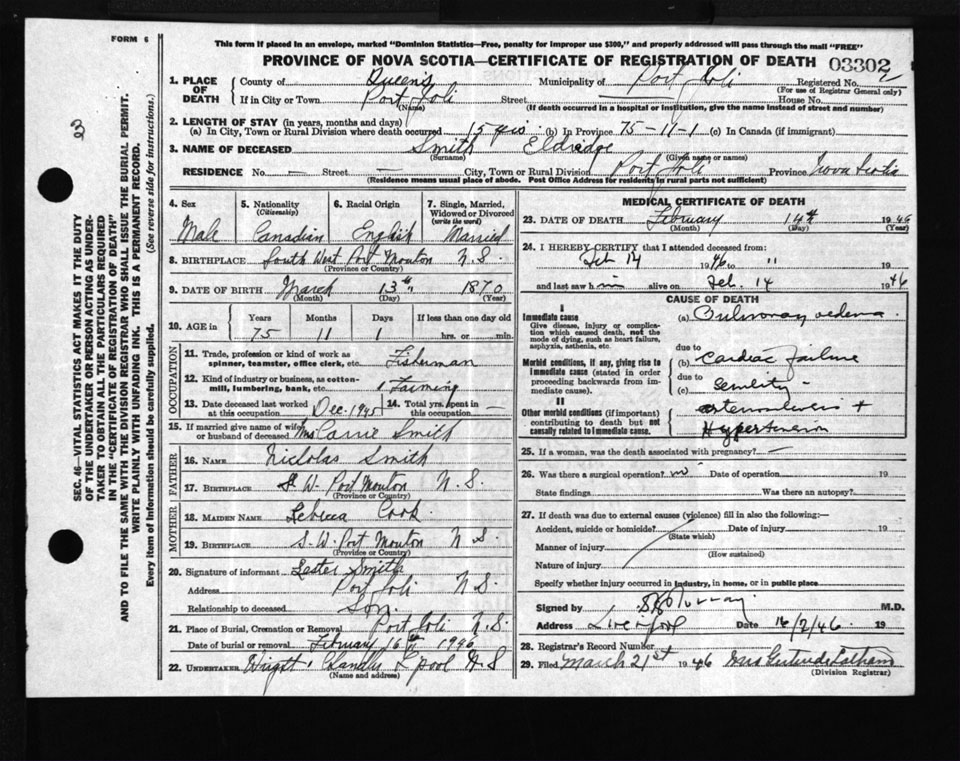 FORM 6
This form if placed in an envelope, marked "Dominion Statistics—Free, penalty for improper use $300," and properly addressed will pass through the mail "FREE"
PROVINCE OF NOVA SCOTIA—CERTIFICATE OF REGISTRATION OF DEATH 03302
1. PLACE OF DEATH County of Queen's Municipality of Port Joli Registered No.
(For use of Registrar General only)
If in City or Town Port Joli Street — House No.
(Name) (If death occurred in a hospital or institution, give the name instead of street and number)
2. LENGTH OF STAY (in years, months and days)
(a) In City, Town or Rural Division where death occurred 15 yrs (b) In Province 75-11-1 (c) In Canada (if immigrant)
3. NAME OF DECEASED Smith Eldridge
(Surname) (Given name or names)
RESIDENCE No. — Street — City, Town or Rural Division Port Joli Province Nova Scotia
(Residence means usual place of abode. Post Office Address for residents in rural parts not sufficient)
4. Sex 5. Nationality 6. Racial Origin 7. Single, Married,
(Citizenship) Widowed or Divorced
(write the word)
Male Canadian English Married
8. BIRTHPLACE South West Port Mouton N.S.
(Province or Country)
9. DATE OF BIRTH March 13th 1870
(Month) (Day) (Year)
10. AGE in Years Months Days If less than one day old
75 11 1 hrs. or min.
OCCUPATION
11. Trade, profession or kind of work as
spinner, teamster, office clerk, etc. Fisherman
12. Kind of industry or business, as cotton-
mill, lumbering, bank, etc. Farming
13. Date deceased last worked 14. Total yrs. spent in
at this occupation Dec. 1945 this occupation —
15. If married give name of wife
or husband of deceased Mrs Carrie Smith
FATHER
16. NAME Nicholas Smith
17. BIRTHPLACE S. W. Port Mouton N.S.
(Province or Country)
MOTHER
18. MAIDEN NAME Cook
19. BIRTHPLACE S. W. Port Mouton N S.
(Province or Country)
20. Signature of informant Lester Smith
Address Port Joli N S.
Relationship to deceased Son.
21. Place of Burial, Cremation or Removal Port Joli N.S.
Date of burial or removal February 16th 1946
22. UNDERTAKER Wright Chandler L'pool N S
(Name and address)
MEDICAL CERTIFICATE OF DEATH
23. DATE OF DEATH February 14th 1946
(Month) (Day) (Year)
24. I HEREBY CERTIFY that I attended deceased from:
Feb 14 1946 to " 19
and last saw him alive on Feb. 14 1946
CAUSE OF DEATH
I
Immediate cause (a) Pulmonary oedema
Give disease, injury or complica-
tion which caused death, not the
mode of dying, such as heart failure,
asphyxia, asthenia, etc. due to
Morbid conditions, if any, giving rise to (b) Cardiac failure
immediate cause (stated in order due to
proceeding backwards from im- (c) Senility —
mediate cause).
II
Other morbid conditions (if important) arteriosclerosis +
contributing to death but not
causally related to immediate cause. Hypertension
25. If a woman, was the death associated with pregnancy? —
26. Was there a surgical operation? no Date of operation 19
State findings Was there an autopsy?
27. If death was due to external causes (violence) fill in also the following:—
Accident, suicide or homicide? Date of injury 19
(State which)
Manner of injury
(How sustained)
Nature of injury
Specify whether injury occurred in industry, in home, or in public place
Signed by Murray M.D.
Address Liverpool Date 16/2/46 19
28. Registrar's Record Number
29. Filed March 21st 1946 Mrs Gertrude
(Division Registrar)
SEC. 46—VITAL STATISTICS ACT MAKES IT THE DUTY
OF THE UNDERTAKER OR PERSON ACTING AS UNDER-
TAKER TO OBTAIN ALL THE PARTICULARS REQUIRED
IN THE "CERTIFICATE OF REGISTRATION OF DEATH"
AND TO FILE THE SAME WITH THE DIVISION REGISTRAR WHO SHALL ISSUE THE BURIAL PERMIT.
WRITE PLAINLY WITH UNFADING INK. THIS IS A PERMANENT RECORD.
Every item of Information should be carefully supplied. (See reverse side for instructions.)